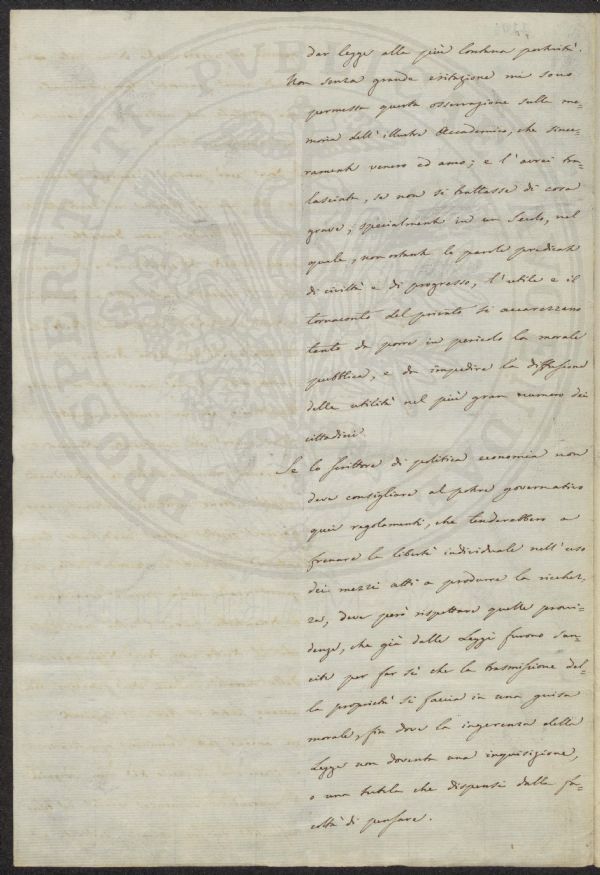 dar legge alla più lontana posterità.
Non senza grande esitazione mi sono
permessa questa osservazione sulla me-
moria dell'illustre Accademico, che since-
ramente venero ed amo; e l'avrei tra-
lasciata, se non si trattasse di cosa
grave, specialmente in un Secolo, nel
quale, non ostante le parole predicate
di civiltà e di progresso, l'utile e il
tornaconto del privato si accarezzano
tanto da porre in pericolo la morale
pubblica, e da impedire la diffusione
delle utilità nel più gran numero dei
cittadini.
Se lo scrittore di politica economia non
deve consigliare al potere governativo
quei regolamenti, che tenderebbero a
frenare la libertà individuale nell'uso
dei mezzi atti a produrre la ricchez-
za, deve però rispettare quelle provvi-
denze, che già dalle Leggi furono san-
cite per far sì che la trasmissione del-
la proprietà si faccia in una guisa
morale, fin dove la ingerenza della
Legge non doventa una inquisizione,
o una tutela che dispensi dalla fa-
coltà di pensare.
PROSPERITATI PVBLICAE